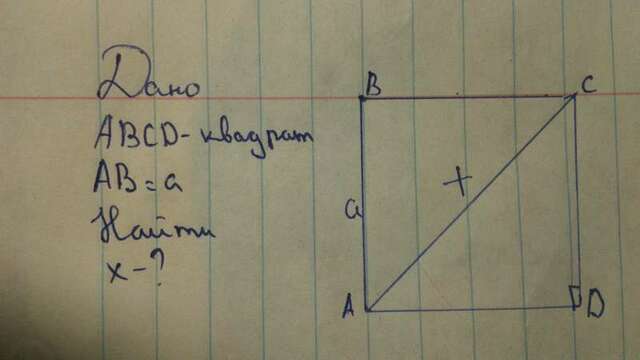 Дано
ABCD - квадрат
AB = a
Найти
x - ?
B
C
a
x
A
D